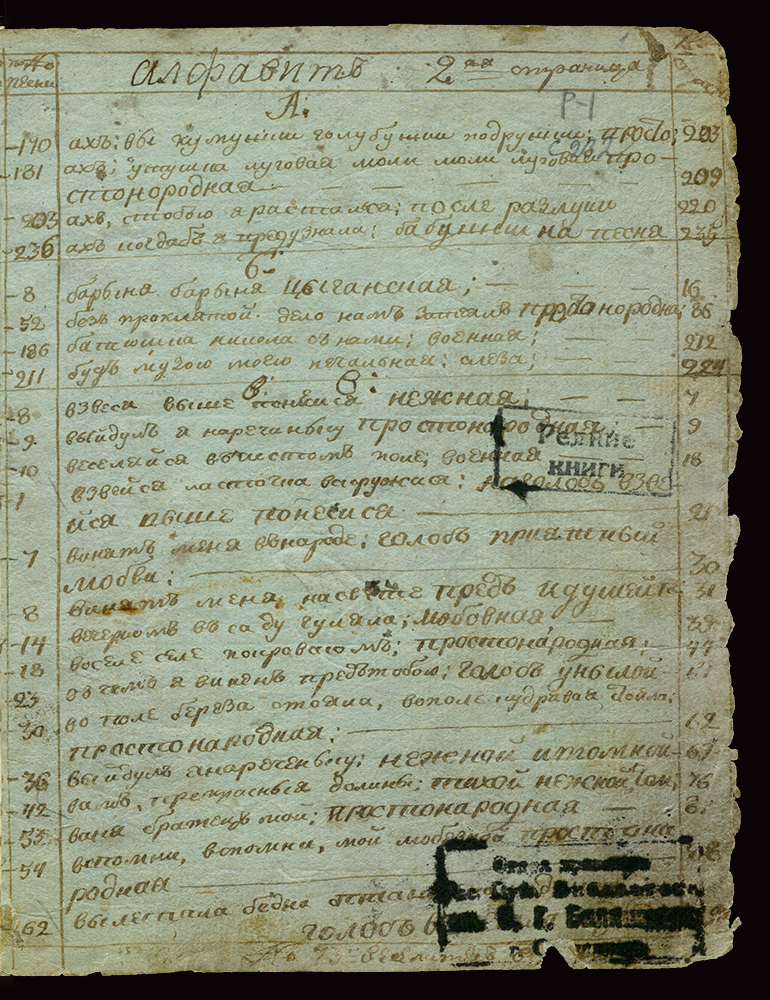 алфавитъ 2ая страница
песни
А.
Р-1
170 ахъ: вы кумушки голубушки подружки; просто; 203
181 ахъ: утушка луговая моли моли луговая про-
стонородная 209
203 ахъ, стобою я растался; после разлуки 220
236 ахъ когдабъ я предузнала: бабушкина песня 235
б.
8 барыня барыня цыганская; 16
52 безъ проклятой дело намъ 86
186 батюшка никола съ нами; военная; 212
211 будь музою моею печальная; слеза; 224
в: в:
8 взвеся выше понесися нежная; 7
9 выйдулъ я наречиньку простонародная; 9
10 веселяйся въчистомъ поле; военная 18
1 взвейся ласточка вскружися; наголосъ взве-
йся выше понесися 21
7 винятъ меня внароде; голосъ приятный
любви; 30
8 винятъ меня насвете предъ 31
14 вечеркомъ въ саду гуляла; любовная 39
18 воселе селе покровскомъ; простонародная; 44
23 въ чемъ я виненъ предътобою; голосъ унылой 51
30 во поле береза стояла, вополе кудравая
простонародная; 62
36 выйдулъ янареченьку; нежной итомной
42 прекрасныя долины; тихой нежной 76
53 ваня братецъ мой; простонародная
54 вспомни, вспомни, мой любезной простона
родная
62 вылетала бедна
голосъ
Редкие
книги